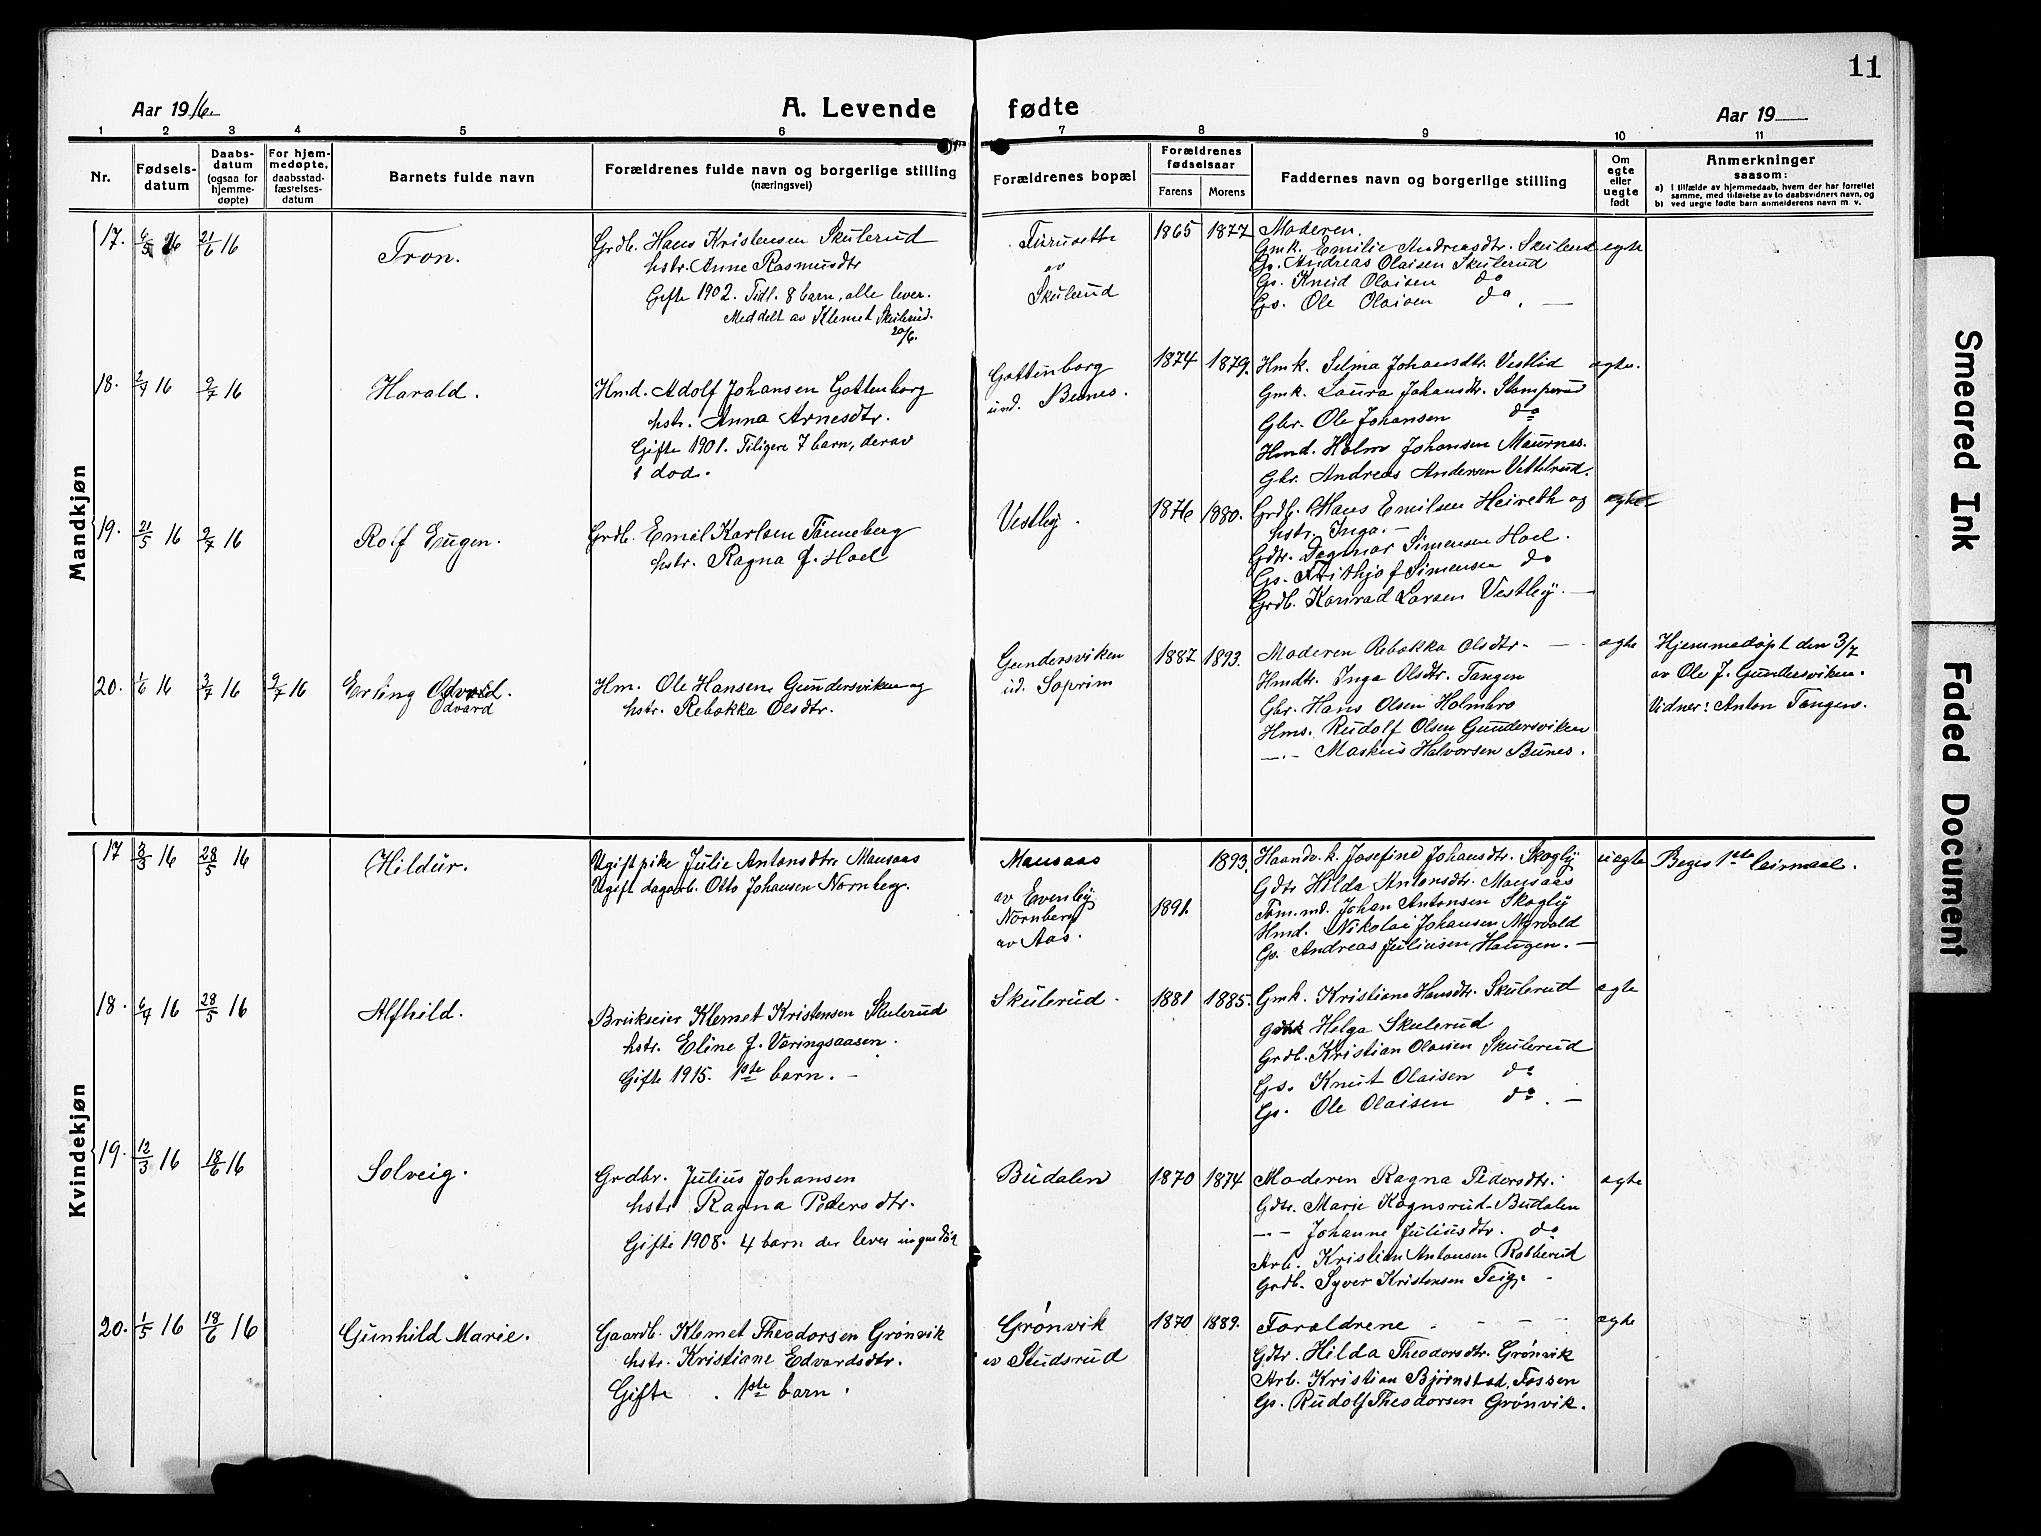 11
Aar 1916.
A. Levende fødte
Aar 19
1 2 3 4 5 6 7 8 9 10 11
Nr.
Fødsels-
datum
Daabs-
datum
(ogsaa for
hjemme-
døpte)
For hjem-
medøpte,
daabsstad-
fæstelses-
datum
Barnets fulde navn
Forældrenes fulde navn og borgerlige stilling
(næringsvei)
Forældrenes bopæl
Forældrenes
fødselsaar
Farens Morens
Faddernes navn og borgerlige stilling
Om
egte
eller
uegte
født
Anmerkninger
saasom:
a) i tilfælde av hjemmedaab, hvem der har forrettet
samme, med tilføielse av to daabsvidners navn, og
b) ved uegte fødte barn anmelderens navn m. v.
Mandkjøn
17. 6/5 16 21/6 16
Tron.
Grdb. Hans Kristensen Skulerud
hstr. Anne Rasmusdtr
Gifte 1902. Tidl. 8 barn, alle lever.
Meddelt av Klemet Skulerud.
20/6.
Furusette
av
Skulerud
1865 1877
Moderen.
Gmk. Emilie Andreasdtr. Skulerud
Gs. Andreas Olaisen Skulerud
Gs. Knud Olaisen do
Gs. Ole Olaisen do. —
egte
18. 2/4 16 9/7 16
Harald.
Hmd. Adolf Johansen Gottenborg
hstr. Anna Arnesdtr.
Gifte 1901. Tiligere 7 barn, derav
1 død.
Gottenborg
und. Bunes.
1874 1879.
Hmk. Selma Johansdtr. Vestlid
Gmk. Laura Johansdtr. Stomperud
Gbr. Ole Johansen do
Hmd. Holm Johansen Maurnes.
Gbr. Andreas Andersen Vettelrud.
ægte.
19. 21/5 16 9/7 16
Rolf Eugen.
Grdb. Emil Karlsen Tønneberg
hstr. Ragna f. Hoel
Vestby.
1876 1880.
Grdb. Hans Emilsen Heireth og
hstr. Inga. —
Gdtr. Dagmar Simensen Hoel.
Gs. Frithjof Simensen do
Grdb. Konrad Larsen Vestby. —
ægte
20. 1/6 16 3/7 16 9/7 16
Erling Odvard.
Odvard
Hm. Ole Hansen Gundersviken og
hstr. Rebekka Olsdtr.
Gundersviken
ud. Soprim
1887 1893.
Moderen Rebekka Olsdtr. — —
Hmdtr. Inga Olsdtr. Tangen
Gbr. Hans Olsen Holmbro
Hms. Rudolf Olsen Gundersviken
—.— Markus Halvorsen Bunes.
ægte
Hjemmedøpt den 3/7
av Ole J. Gundersviken.
Vidner: Anton Tangen.
Kvindekjøn
17 3/3 16 28/5 16
Hildur.
Ugift pike Julie Antonsdtr. Mausaas
Ugift dagarb. Otto Johansen Nornberg.
Mausaas
av Evenby
Nornberg
av Aas.
1893.
1891.
Haandv.k. Josefine Johansdtr. Skogly
Gdtr. Hilda Antonsdtr. Mausaas
Tøm.md. Johan Antonsen Skogly
Hmd. Nikolai Johansen Myrvold
Gs. Andreas Juliusen Haugen. —
uægte
Beges 1ste leirmaal.
18. 6/4 16 28/5 16
Alfhild.
Brukseier Klemet Kristensen Skulerud
hstr. Eline f. Væringsaasen.
Gifte 1915. 1ste barn. —
Skulerud.
1881 1885.
Gmk. Kristiane Hansdtr. Skulerud
Helga Skulerud
Grdb. Kristian Olaisen Skulerud
Gs. Knut Olaisen do
Gs. Ole Olaisen do. —
ægte
19. 12/3 16 18/6 16
Solveig.
Grdbr. Julius Johansen
hstr Ragna Pedersdtr.
Gifte 1908. 4 barn der lever ingen død
Budalen
1870 1874
Moderen Ragna Pedersdtr.
Gdtr. Marie Kognsrud-Budalen
—.— Johanne Juliusdtr. do
Arb. Kristian Antonsen Rabberud
Grdb. Syver Kristensen Teig. -
ægte
20. 1/5 16 18/6 16
Gunhild Marie.
Gaardb. Klemet Theodorsen Grønvik
hstr. Kristiane Edvardsdtr.
Gifte . 1ste barn.
Grønvik
av Studsrud
1870 1889.
Forældrene - - - -
Gdtr. Hilda Theodorsdtr. Grønvik
Arb. Kristian Bjørnstad, Fossen
Gs. Rudolf Theodorsen Grønvik.
ægte
Smeared Ink
Faded Document